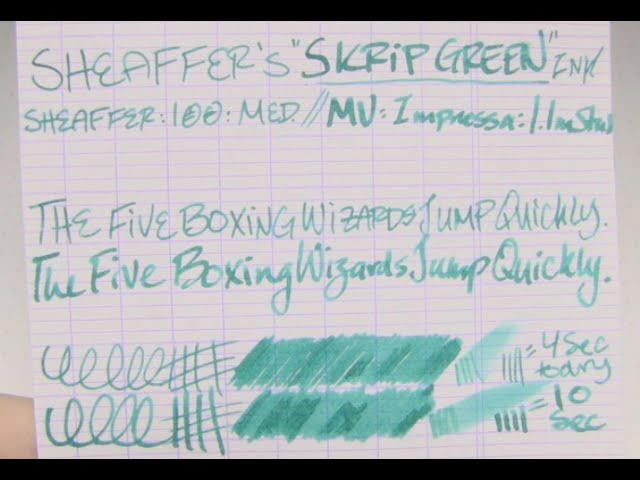 SHEAFFER'S "SKRIP GREEN" INK
SHEAFFER: 100: MED. // MV: Impressa: 1.1m Stub
THE FIVE BOXING WIZARDS JUMP QUICKLY.
The Five Boxing Wizards Jump Quickly.
= 4 Sec to dry
= 10 Sec